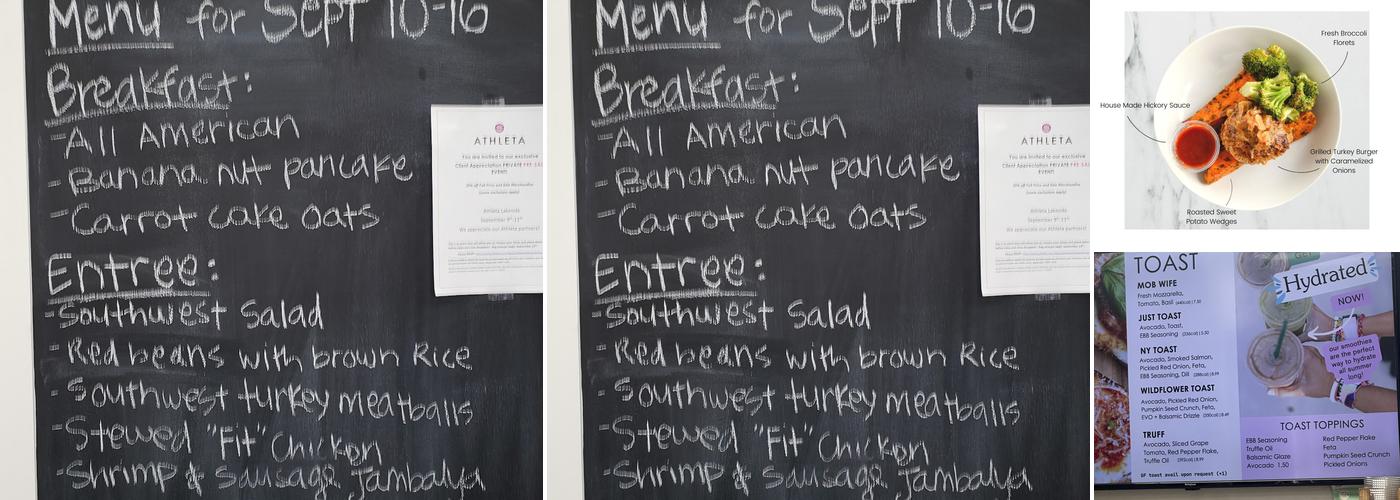 Menu for Sept 10-16
Breakfast:
-All American
-Banana nut pancake
-Carrot cake oats
Entree:
-Southwest Salad
-Red beans with brown Rice
-Southwest turkey meatballs
-Stewed "Fit" Chicken
-Shrimp & Sausage Jambalya
ATHLETA
You are invited to our exclusive
Client Appreciation PRIVATE PRE SA
EVENT!
Athleta Lakeside
September 9th-11th
We appreciate our Athleta partners!
Menu for Sept 10-16
Breakfast:
-All American
-Banana nut pancake
-Carrot cake oats
Entree:
-Southwest Salad
-Red beans with brown Rice
-Southwest turkey meatballs
-Stewed "Fit" Chicken
-Shrimp & Sausage Jambalya
ATHLETA
You are invited to our exclusive
Client Appreciation PRIVATE PRE SA
EVENT!
Athleta Lakeside
September 9th-11th
We appreciate our Athleta partners!
Fresh Broccoli
Florets
House Made Hickory Sauce
Grilled Turkey Burger
with Caramelized
Onions
Roasted Sweet
Potato Wedges
TOAST
MOB WIFE
Fresh Mozzarella,
Tomato, Basil
JUST TOAST
Avocado, Toast,
EBB Seasoning
NY TOAST
Avocado, Smoked Salmon,
Pickled Red Onion, Feta,
EBB Seasoning, Dill
WILDFLOWER TOAST
Avocado, Pickled Red Onion,
Pumpkin Seed Crunch, Feta,
EVO + Balsamic Drizzle
TRUFF
Avocado, Sliced Grape
Tomato, Red Pepper Flake,
Truffle Oil
GF toast avail upon request (+1)
Hydrated
NOW!
our smoothies
are the perfect
way to hydrate
all summer
long!
TOAST TOPPINGS
EBB Seasoning
Truffle Oil
Balsamic Glaze
Avocado 1.50
Red Pepper Flake
Feta
Pumpkin Seed Crunch
Pickled Onions